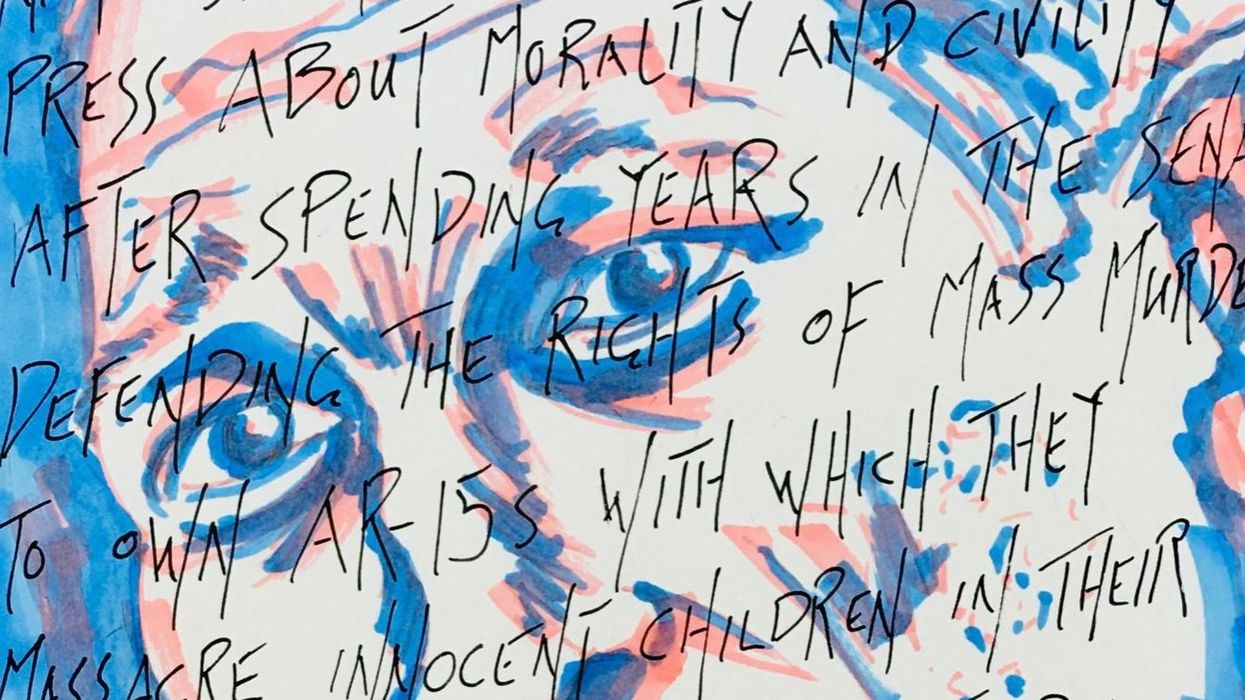 PRESS ABOUT MORALITY AND CIVILITY
AFTER SPENDING YEARS IN THE SENA
DEFENDING THE RIGHTS OF MASS MURDE
TO OWN AR-15S WITH WHICH THEY
MASSACRE INNOCENT CHILDREN IN THEIR